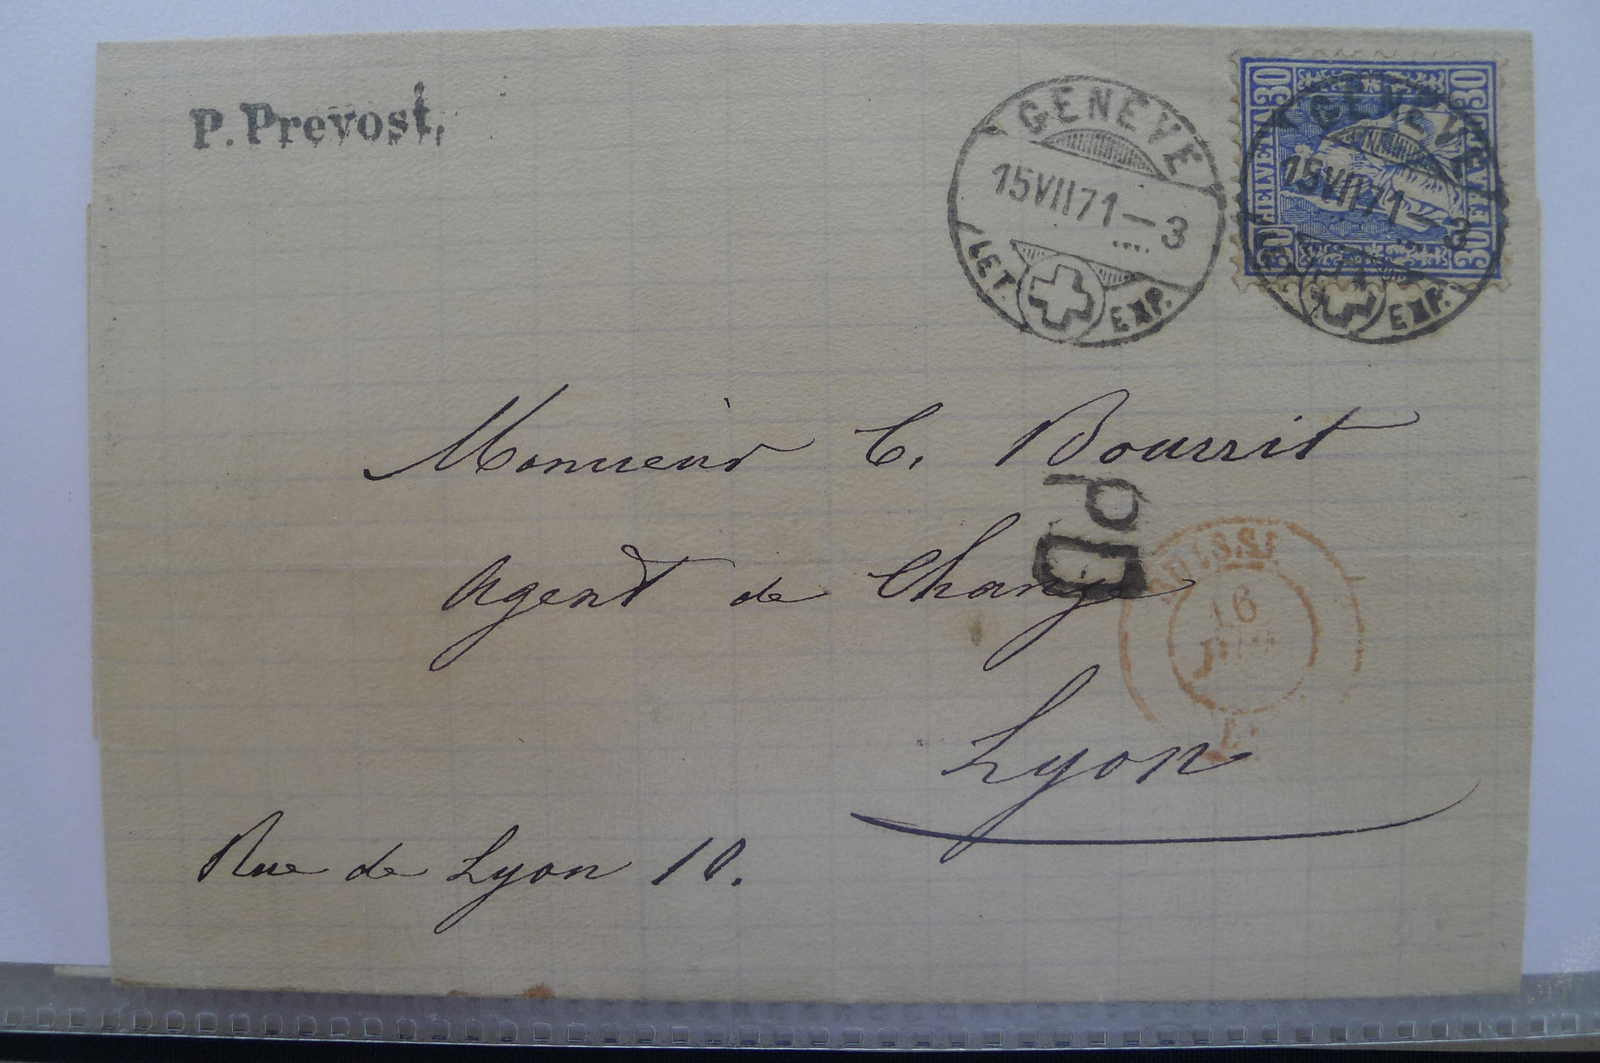 P. Prevost.
GENÈVE
15 VII 71 – 3
LET. EXP.
30 HELVETIA 30
30 FRANCO 30
GENÈVE
15 VII 71 – 3
EXP.
Monsieur C. Bourrit
PD
Agent de Change
SUISSE
16
Lyon
Rue de Lyon 10.